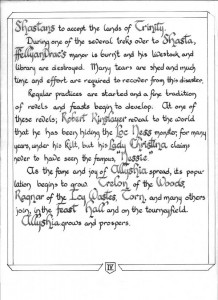 Shastans to accept the lands of Trinity.
During one of the several treks over to Shasta,
manor is burnt and his livestock and
library are destroyed. Many tears are shed and much
time and effort are required to recover from this disaster.
Regular practices are started and a fine tradition
of revels and feasts begin to develop. At one of
these revels, Robert Kinslayer reveal to the world
that he has been hiding the Loc Ness monster, for many
years, under his kilt, but his Lady Christina claims
never to have seen the famous, "Nessie".
As the fame and joy of Allyshia spread, its popu-
lation begins to grow. Crelon of the Woods,
Ragnar of the Icy Wastes, Corn, and many others
join, in the feast hall and on the tourneyfield.
Allyshia grows and prospers.
IV